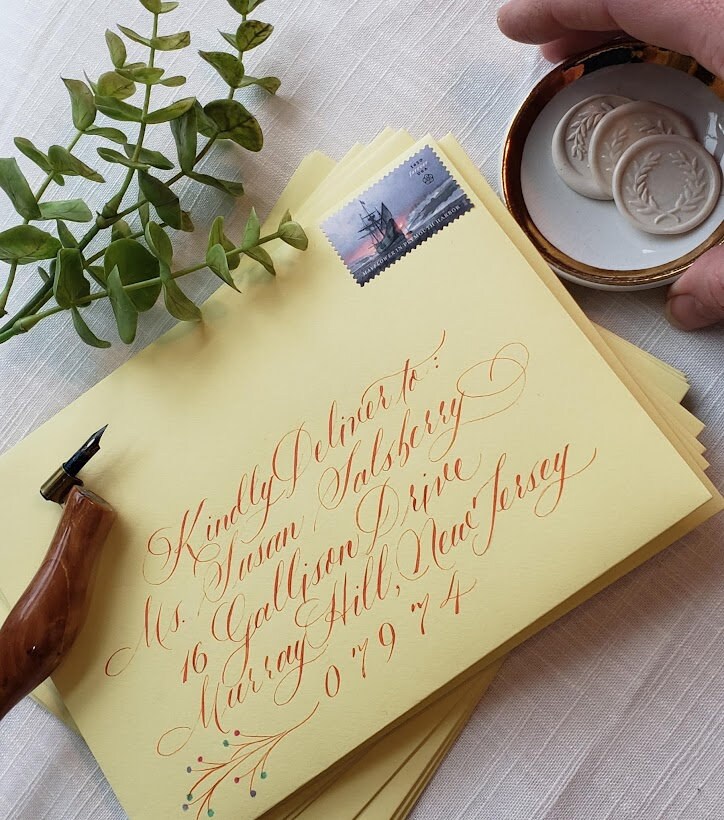 MAYFLOWER IN PLYMOUTH HARBOR
Kindly Deliver to:
Ms. Susan Salsberry
16 Gallison Drive
Murray Hill, New Jersey
07974